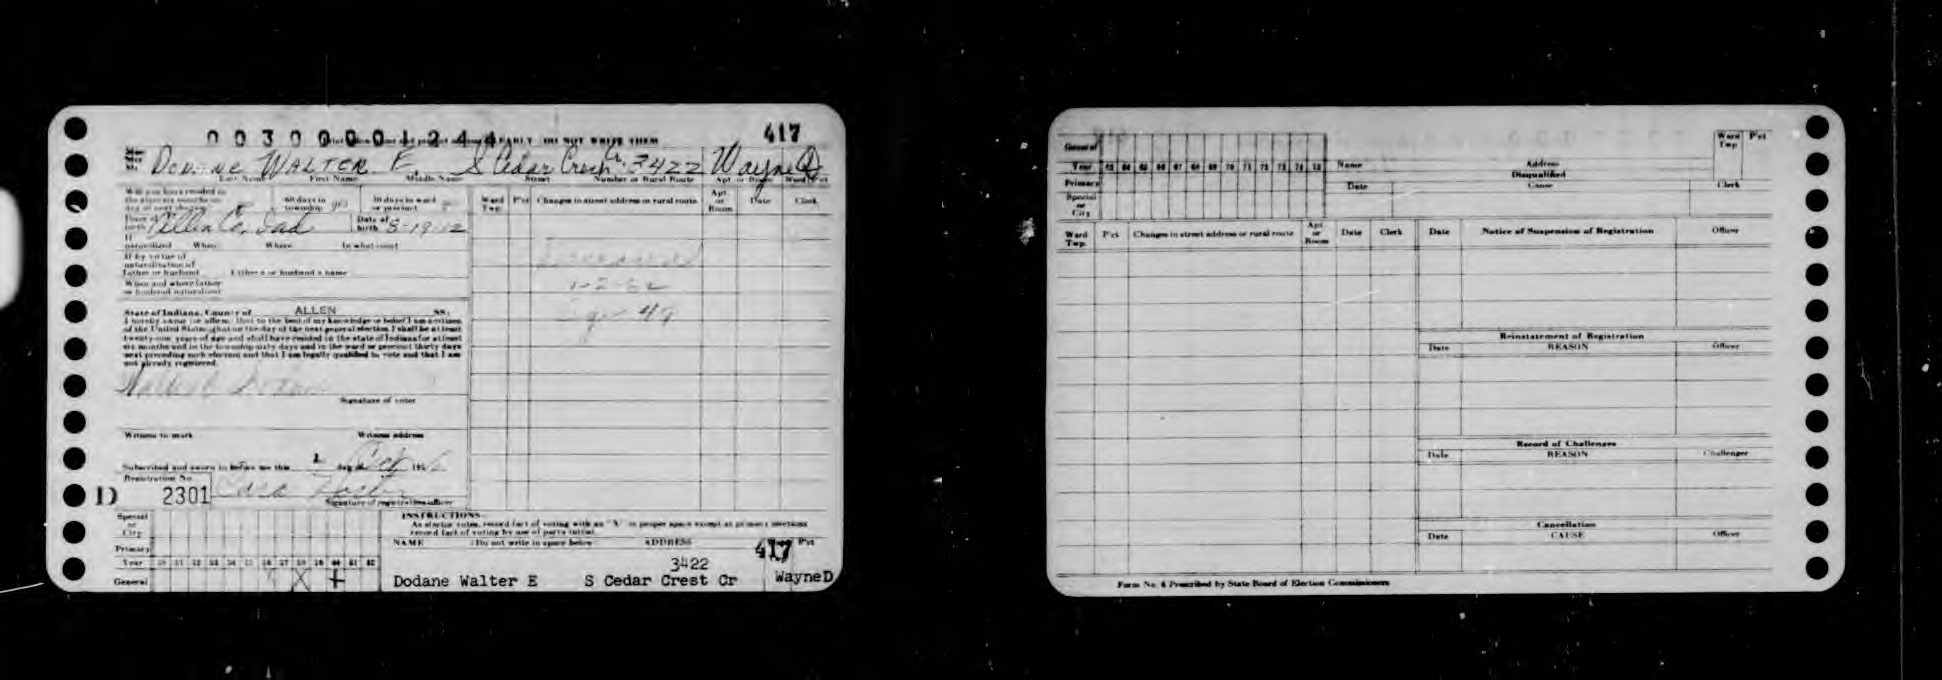 0030000124
417
Mr. Mrs. Miss Dodane Walter E. S Cedar Crest Cr. 3422 Wayne D
Last Name First Name Middle Name Street Number or Rural Route Apt or Room Ward Pct
Will you have resided in the state six months on day of next election 60 days in township yes 30 days in ward or precinct
Place of birth Allen Co. Ind Date of birth 8-19-12
If naturalized When Where In what court
If by virtue of naturalization of father or husband Father's or husband's name
When and where father or husband naturalized
Ward Twp. P'ct Changes in street address or rural route Apt or Room Date Clerk
Deceased
1-2-62
Age 49
State of Indiana, County of ALLEN SS:
I hereby swear (or affirm) that to the best of my knowledge or belief I am a citizen
of the United States, that on the day of the next general election I shall be at least
twenty-one years of age and shall have resided in the state of Indiana for at least
six months and in the township sixty days and in the ward or precinct thirty days
next preceding such election and that I am legally qualified to vote and that I am
not already registered.
Walter E Dodane
Signature of voter
Witness to mark Witness address
Subscribed and sworn to before me this 1 day of Oct 195
Registration No.
D 2301
Signature of registration officer
Special or City
Primary
Year 50 51 52 53 54 55 56 57 58 59 60 61 62
General X X
INSTRUCTIONS
As elector votes, record fact of voting with an "X" in proper space except at primary elections
record fact of voting by use of party initial.
NAME (Do not write in space below) ADDRESS 417 P'ct
3422
Dodane Walter E S Cedar Crest Cr Wayne D
General
Year 63 64 65 66 67 68 69 70 71 72 73 74 75
Primary
Special or City
Name Address Ward Twp P'ct
Disqualified
Date Cause Clerk
Ward Twp. P'ct Changes in street address or rural route Apt or Room Date Clerk
Date Notice of Suspension of Registration Officer
Reinstatement of Registration
Date REASON Officer
Record of Challenges
Date REASON Challenger
Cancellation
Date CAUSE Officer
Form No. 4 Prescribed by State Board of Election Commissioners